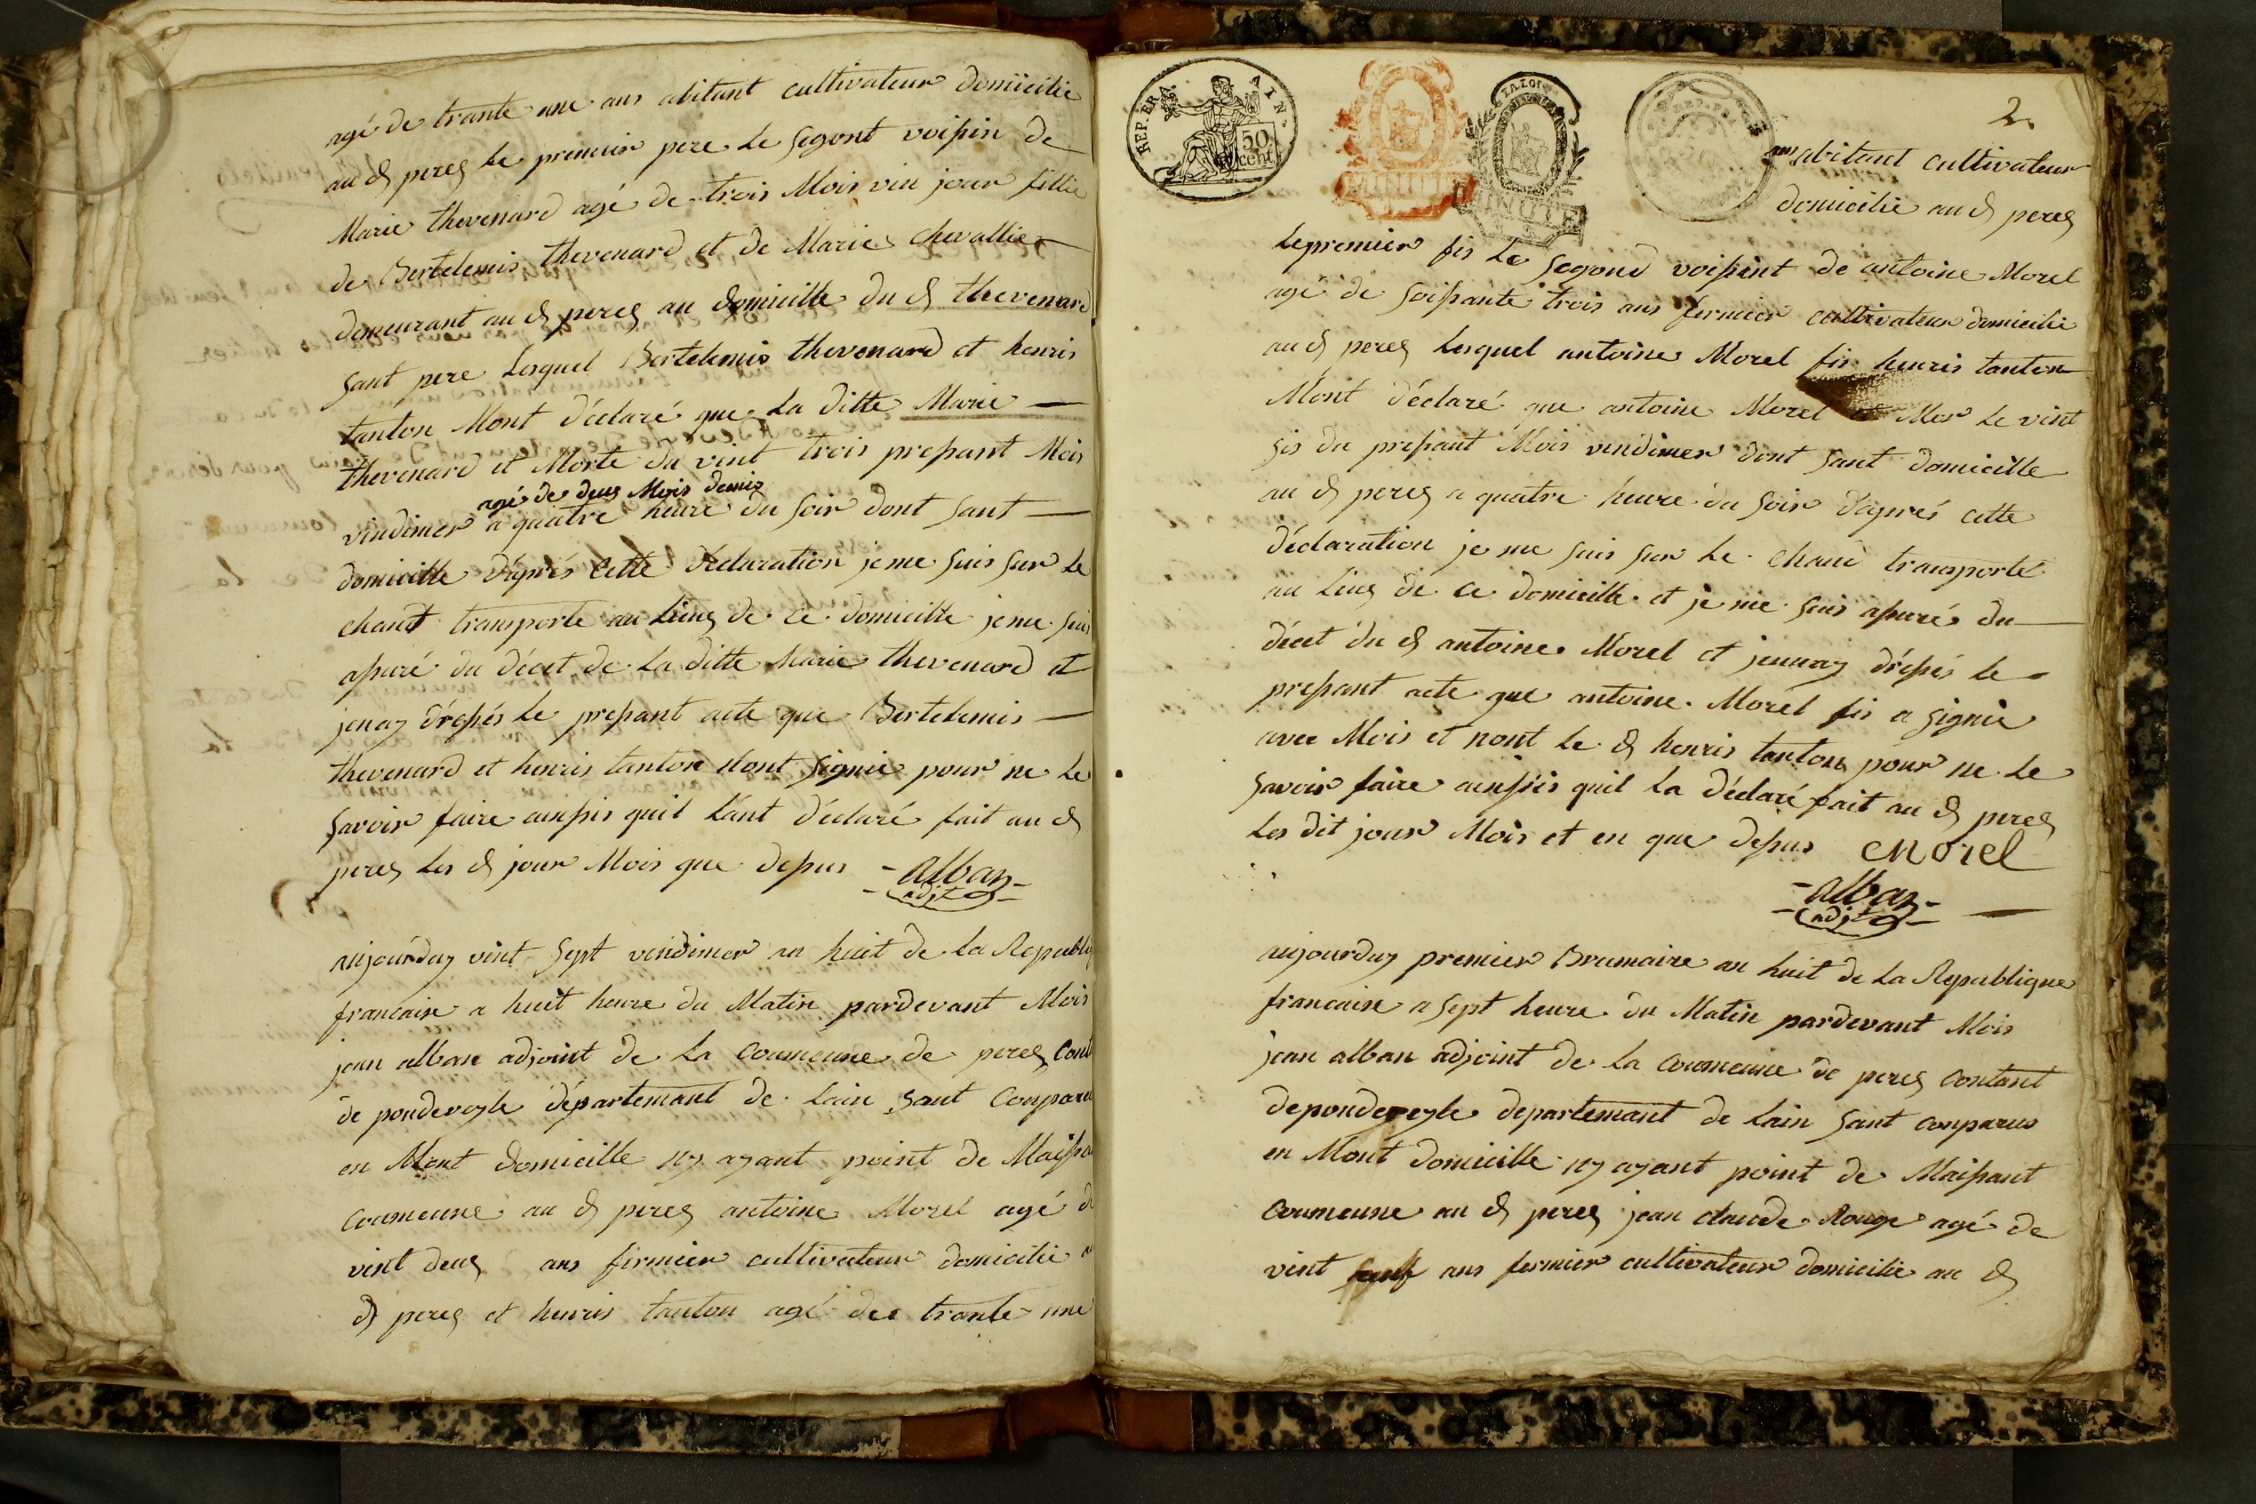 agé de trante une ans abitant cultivateur domicilie
au d perex le premeir pere le segont voisin de
Marie thevenard agé de trois Mois vin jour fillie
de Bertelemis thevenard et de Marie chevallier
demeurant au d perex au domicille du d thevenard
sant pere lesquel Bertelemis thevenard et henris
tanton Mont déclaré que la ditte Marie
thevenard et Morte du vint trois pressant Mois
agé de deux Mois demis
vindimer a quatre heure du soir dont sant
domicille d'aprés cette déclaration je me suis sur le
chant transporte au lieux de ce domicille je me suis
assuré du décet de la ditte Marie thevenard et
jenay dressés le pressant acte que Bertelemis
thevenard et henris tanton Nont signie pour ne le
savoir faire ainssis quil lánt déclaré fait au d
perex les d jour Mois que dessus
alban
adjt
aujourduy vint sept vindimer an huit de la Republi
francaise a huit heure du Matin pardevant Mois
jean alban adjoint de la coumeune de perex Cont
de pondeveyle département de lain sant Conparu
en Mont domicille ny ayant point de Maissa
coumeune au d perex antoine Morel agé d
vint deux ans firmier cultivateur domicilie a
d perex et henris tanton agé de trante une
REP ERA
7 I N
50
cent
MINUTE
MINUTE
2
ans abitant cultivateur
domicilie au d perex
le premier fis le segond voissint de antoine Morel
agé de soissante trois ans fermier cultivateur domicilie
au d perex lesquel antoine Morel fis henris tanton
Mont déclaré que antoine Morel et Mor le vint
sis du pressant Mois vindimer dont sant domicille
au d perex a quatre heure du soir d'aprés cette
déclaration je me suis sur le chant transporté
au lieux de ce domicille et je me suis assuré du
décet du d antoine Morel et jennay dressés le
pressant acte que antoine Morel fis a signie
avec Mois et nont le d henris tanton pour ne le
savoir faire ainssis quil la déclaré fait au d perex
les dit jour Mois et en que dessus Morel
alban
adjt
aujourduy premier Brumaire an huit de la Republique
francaise a sept heure du Matin pardevant Mois
jean alban adjoint de la coumeune de perex contant
de pondeveyle departemant de lain sant conparus
en Mont domicille ny ayant point de Maissant
coumeune au d perex jean claude Rouge agé de
vint ans fermier cultivateur domicilie au d